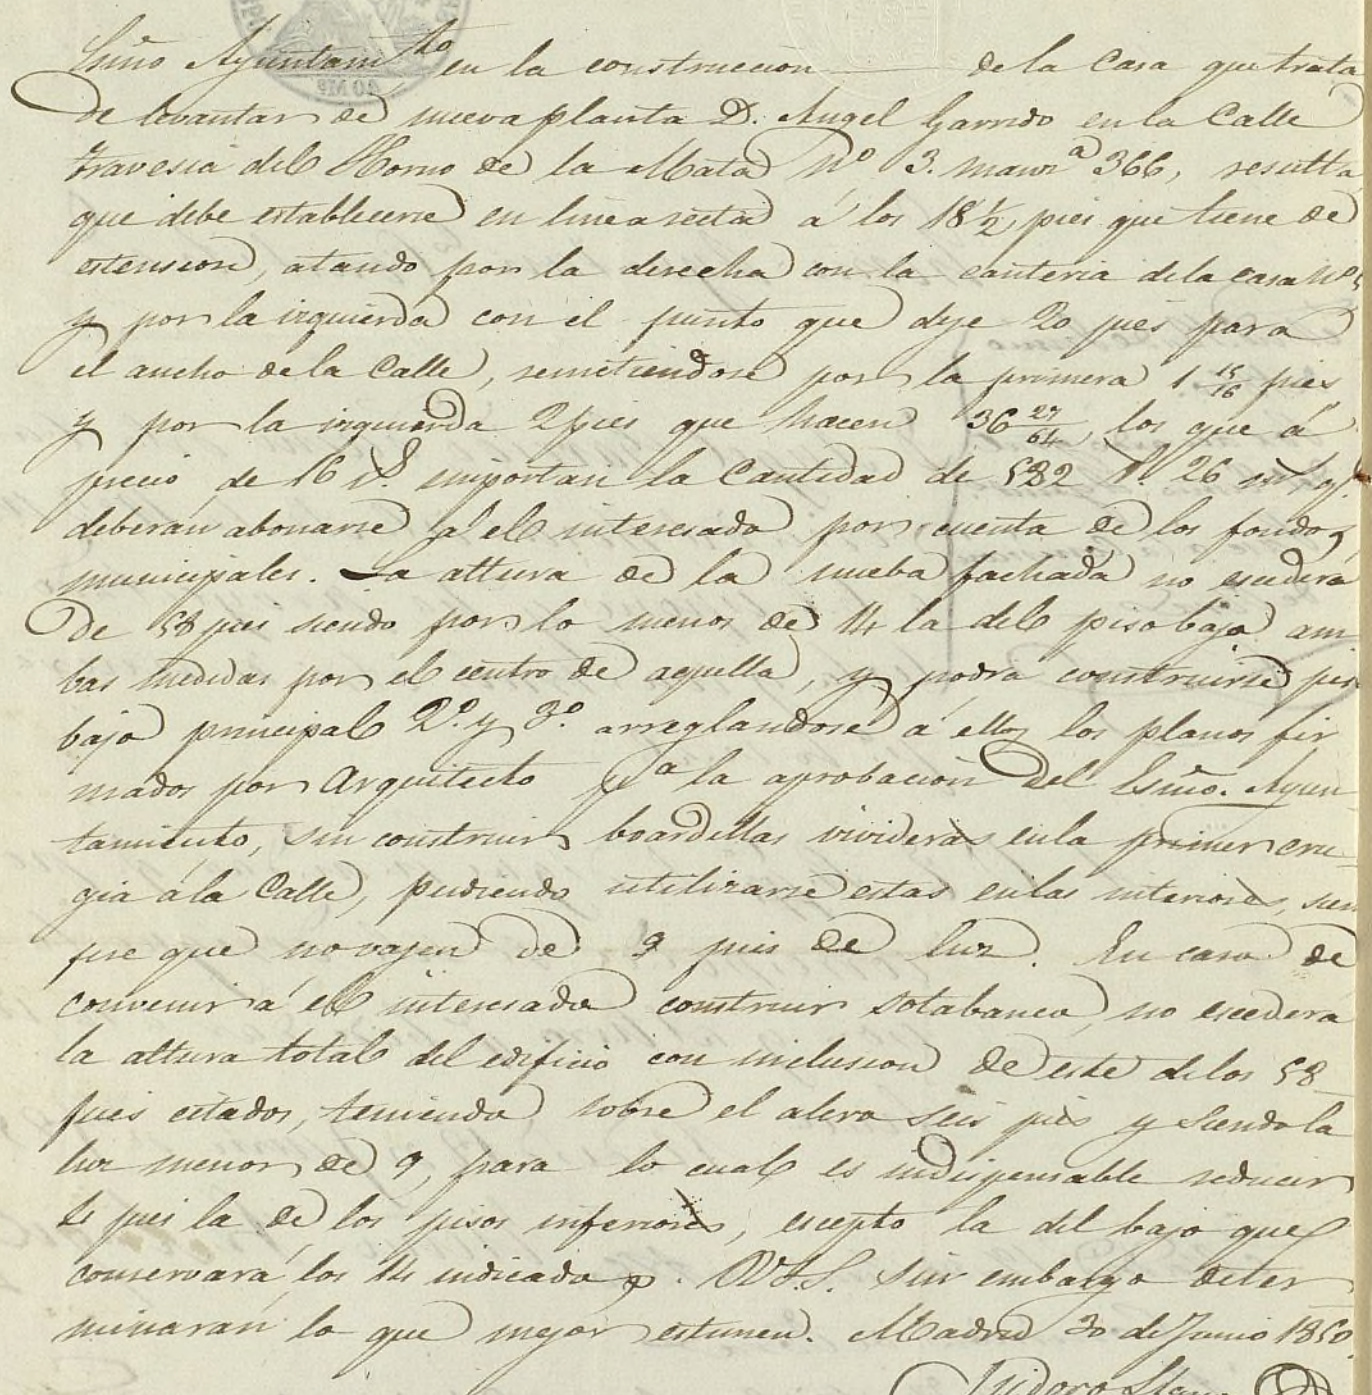 Esmo Ayuntamto en la construccion de la Casa que trata
de levantar de nueva planta D. Angel Garrido en la Calle
travesia del Horno de la Mata No 3. manza 366, resulta
que debe establecerse en linea recta á los 18 1/2 pies que tiene de
estension, atando por la derecha con la canteria de la casa No 5
y por la izquierda con el punto que deje 20 pies para
el ancho de la Calle, remetiendose por la primera 1 15/16 pies
y por la izquierda 2 pies que hacen 36 27/64, los que á
precio de 16 rs. importan la Cantidad de 582 rs. 26 ms. qe.
deberan abonarse á el interesado por cuenta de los fondos
municipales. La altura de la nueba fachada no escedera
de 58 pies siendo por lo menos de 14 la del piso bajo am
bas medidas por el centro de aquella, y podra construirse piso
bajo principal 2o. y 3o. arreglandose á ellos los planos fir
mados por Arquitecto pa la aprobacion del Esmo. Ayun
tamiento, sin construir boardillas vivideras en la primer cru
gia á la Calle, pudiendo utilizarse estas en las interiores, siem
pre que no vajen de 9 pies de luz. En caso de
convenir á el interesado construir sotabanco, no escedera
la altura total del edificio con inclusion de este de los 58
pies citados, teniendo sobre el alero seis pies y siendo la
luz menor de 9, para lo cual es indispensable reducir
la de los pisos inferiores, escepto la del bajo que
conservará los 14 indicados. V.S. sin embargo deter
minaran lo que mejor estimen. Madrid 30 de Junio 1850.
Isidoro Llanos